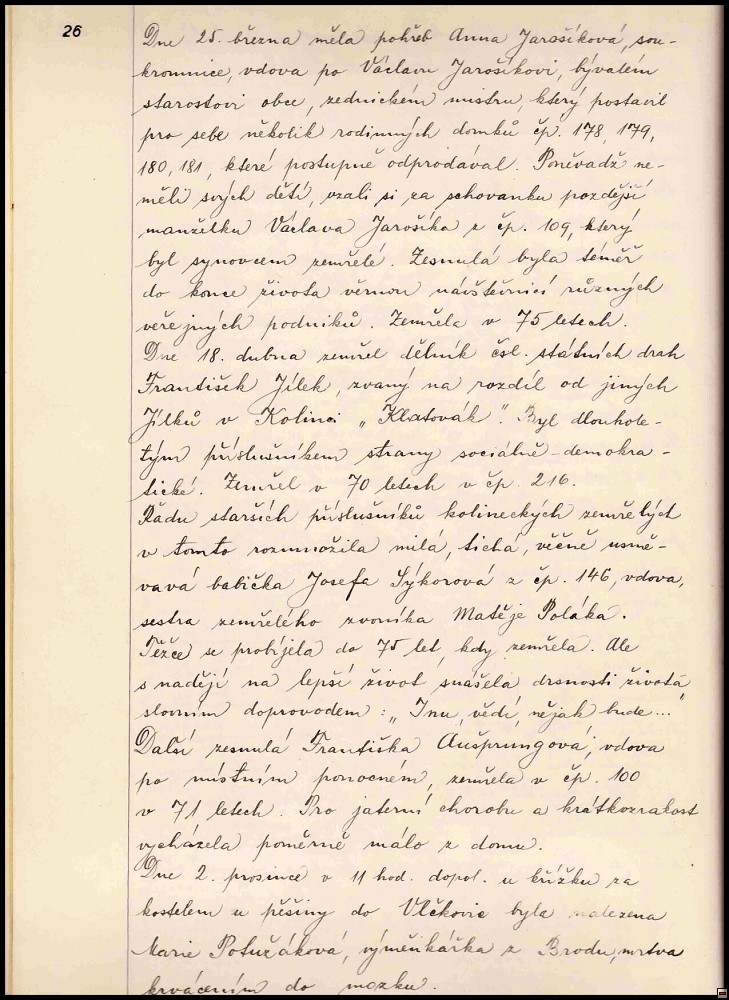 26
Dne 25. března měla pohřeb Anna Jarošíková, sou-
kromnice, vdova po Václavu Jarošíkovi, bývalém
starostovi obce, zednickém mistru, který postavil
pro sebe několik rodinných domků čp. 178, 179,
180, 181, které postupně odprodával. Poněvadž ne-
měli svých dětí, vzali si za schovanku pozdější
manželku Václava Jarošíka z čp. 109, který
byl synovcem zemřelé. Zesnulá byla téměř
do konce života věrnou návštěvnicí různých
veřejných podniků. Zemřela v 75 letech.
Dne 18. dubna zemřel dělník čsl. státních drah
František Jílek, zvaný na rozdíl od jiných
Jílků v Kolinci „Klatovák". Byl dlouhole-
tým příslušníkem strany sociálně-demokra-
tické. Zemřel v 70 letech v čp. 216.
Řadu starších příslušníků kolineckých zemřelých
v tomto rozmnožila milá, tichá, věčně usmě-
vavá babička Josefa Sýkorová z čp. 146, vdova,
sestra zemřelého zvoníka Matěje Poláka.
Těžce se probíjela do 75 let, kdy zemřela. Ale
s nadějí na lepší život snášela drsnosti života
slovním doprovodem: „Inu, vědí, nějak bude..."
Další zesnulá Františka Aušprungová, vdova
po místním ponocném, zemřela v čp. 100
v 71 letech. Pro jaterní chorobu a krátkozrakost
vycházela poměrně málo z domu.
Dne 2. prosince v 11 hod. dopol. u křížku za
kostelem u pěšiny do Vlčkovic byla nalezena
Marie Potužáková, výměnkářka z Brodu, mrtva
krvácením do mozku.